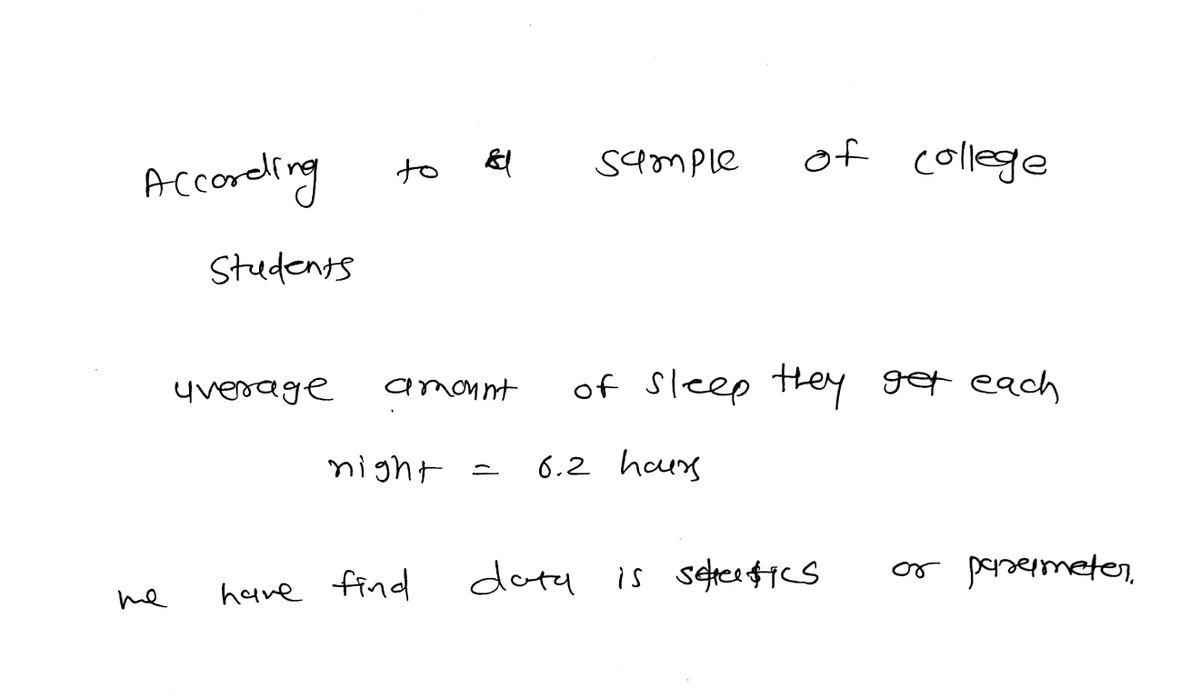 According to a sample of college
students
average amount of sleep they get each
night = 6.2 hours
we have find data is statistics or parameter.